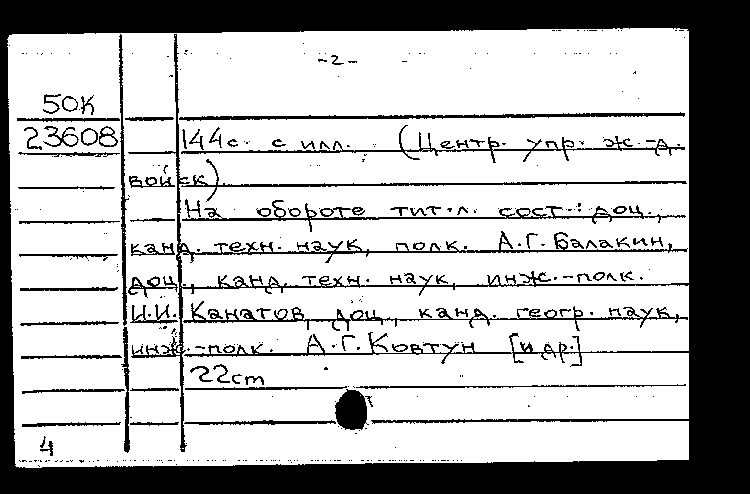 -2-
50К
23608 144с. с илл. (Центр. упр. ж.-д.
войск)
На обороте тит.л. сост.: доц.,
канд. техн. наук, полк. А.Г. Балакин,
доц., канд. техн. наук, инж.-полк.
И.И. Канатов, доц., канд. геогр. наук,
инж.-полк. А.Г. Ковтун [и др.]
22cm
4